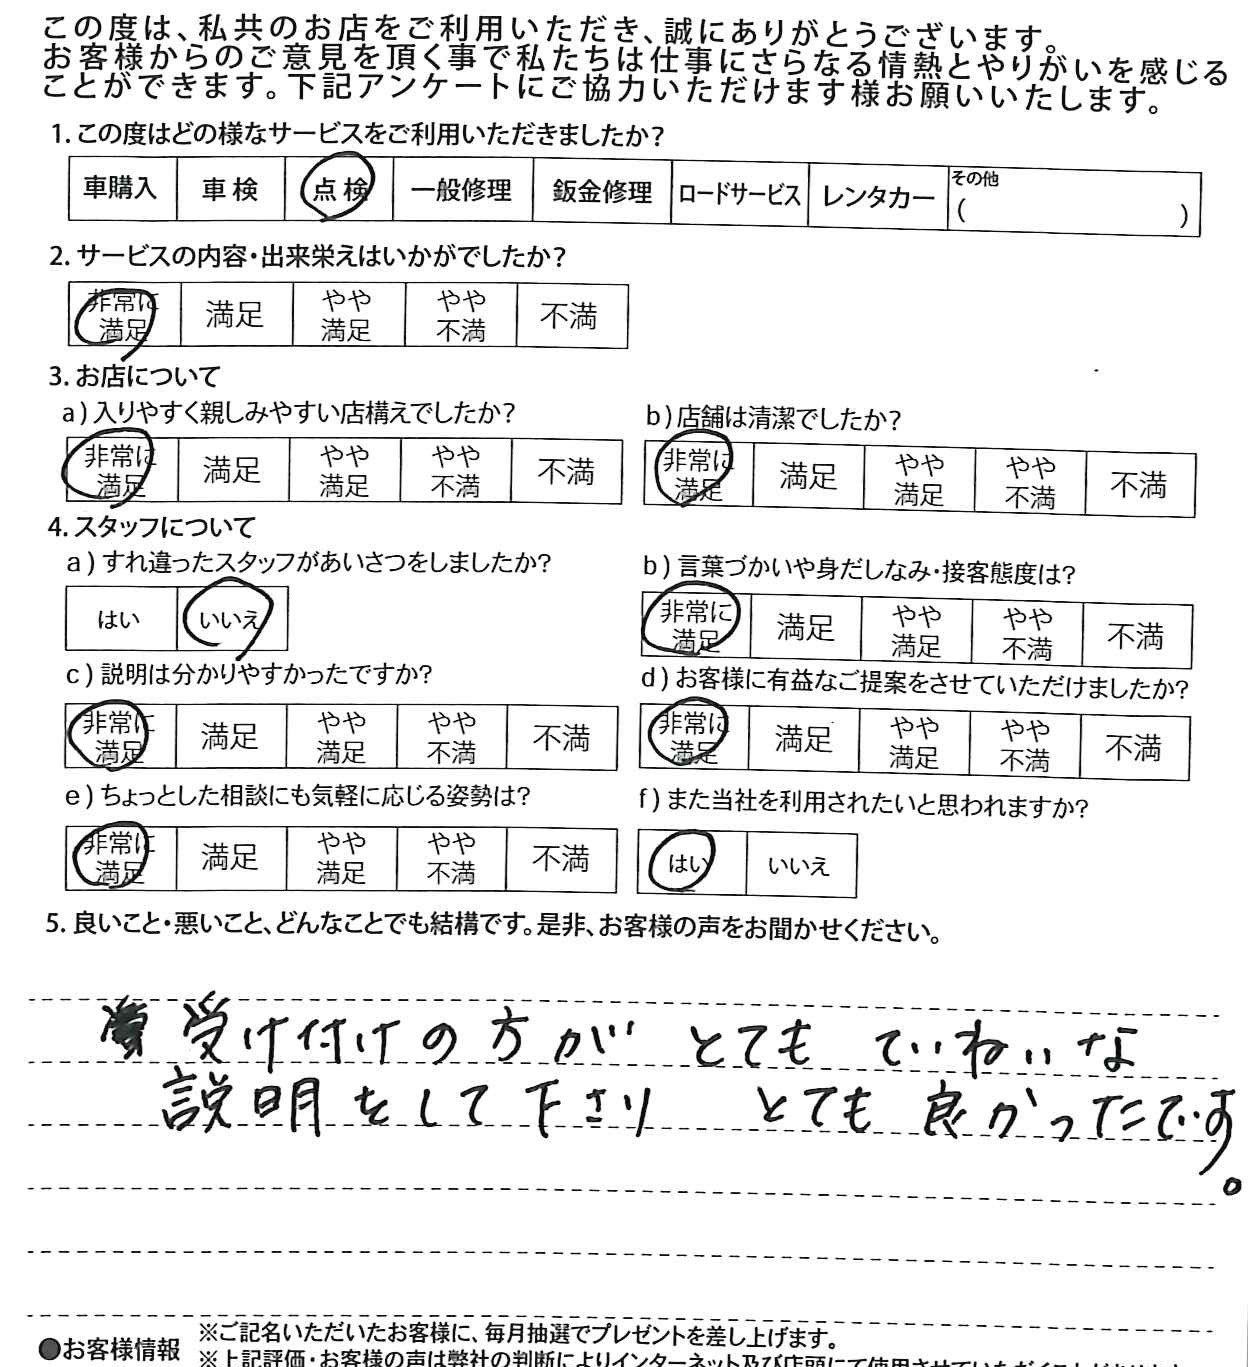 この度は、私共のお店をご利用いただき、誠にありがとうございます。
お客様からのご意見を頂く事で私たちは仕事にさらなる情熱とやりがいを感じる
ことができます。下記アンケートにご協力いただけます様お願いいたします。
1. この度はどの様なサービスをご利用いただきましたか?
車購入 車検 点検 一般修理 鈑金修理 ロードサービス レンタカー その他 ( )
2. サービスの内容・出来栄えはいかがでしたか?
非常に満足 満足 やや満足 やや不満 不満
3. お店について
a) 入りやすく親しみやすい店構えでしたか?
非常に満足 満足 やや満足 やや不満 不満
b) 店舗は清潔でしたか?
非常に満足 満足 やや満足 やや不満 不満
4. スタッフについて
a) すれ違ったスタッフがあいさつをしましたか?
はい いいえ
b) 言葉づかいや身だしなみ・接客態度は?
非常に満足 満足 やや満足 やや不満 不満
c) 説明は分かりやすかったですか?
非常に満足 満足 やや満足 やや不満 不満
d) お客様に有益なご提案をさせていただけましたか?
非常に満足 満足 やや満足 やや不満 不満
e) ちょっとした相談にも気軽に応じる姿勢は?
非常に満足 満足 やや満足 やや不満 不満
f) また当社を利用されたいと思われますか?
はい いいえ
5. 良いこと・悪いこと、どんなことでも結構です。是非、お客様の声をお聞かせください。
受け付けの方が とても ていねいな
説明をして下さり とても良かったです。
●お客様情報 ※ご記名いただいたお客様に、毎月抽選でプレゼントを差し上げます。
※上記評価・お客様の声は弊社の判断によりインターネット及び店頭にて使用させていただくことがあります